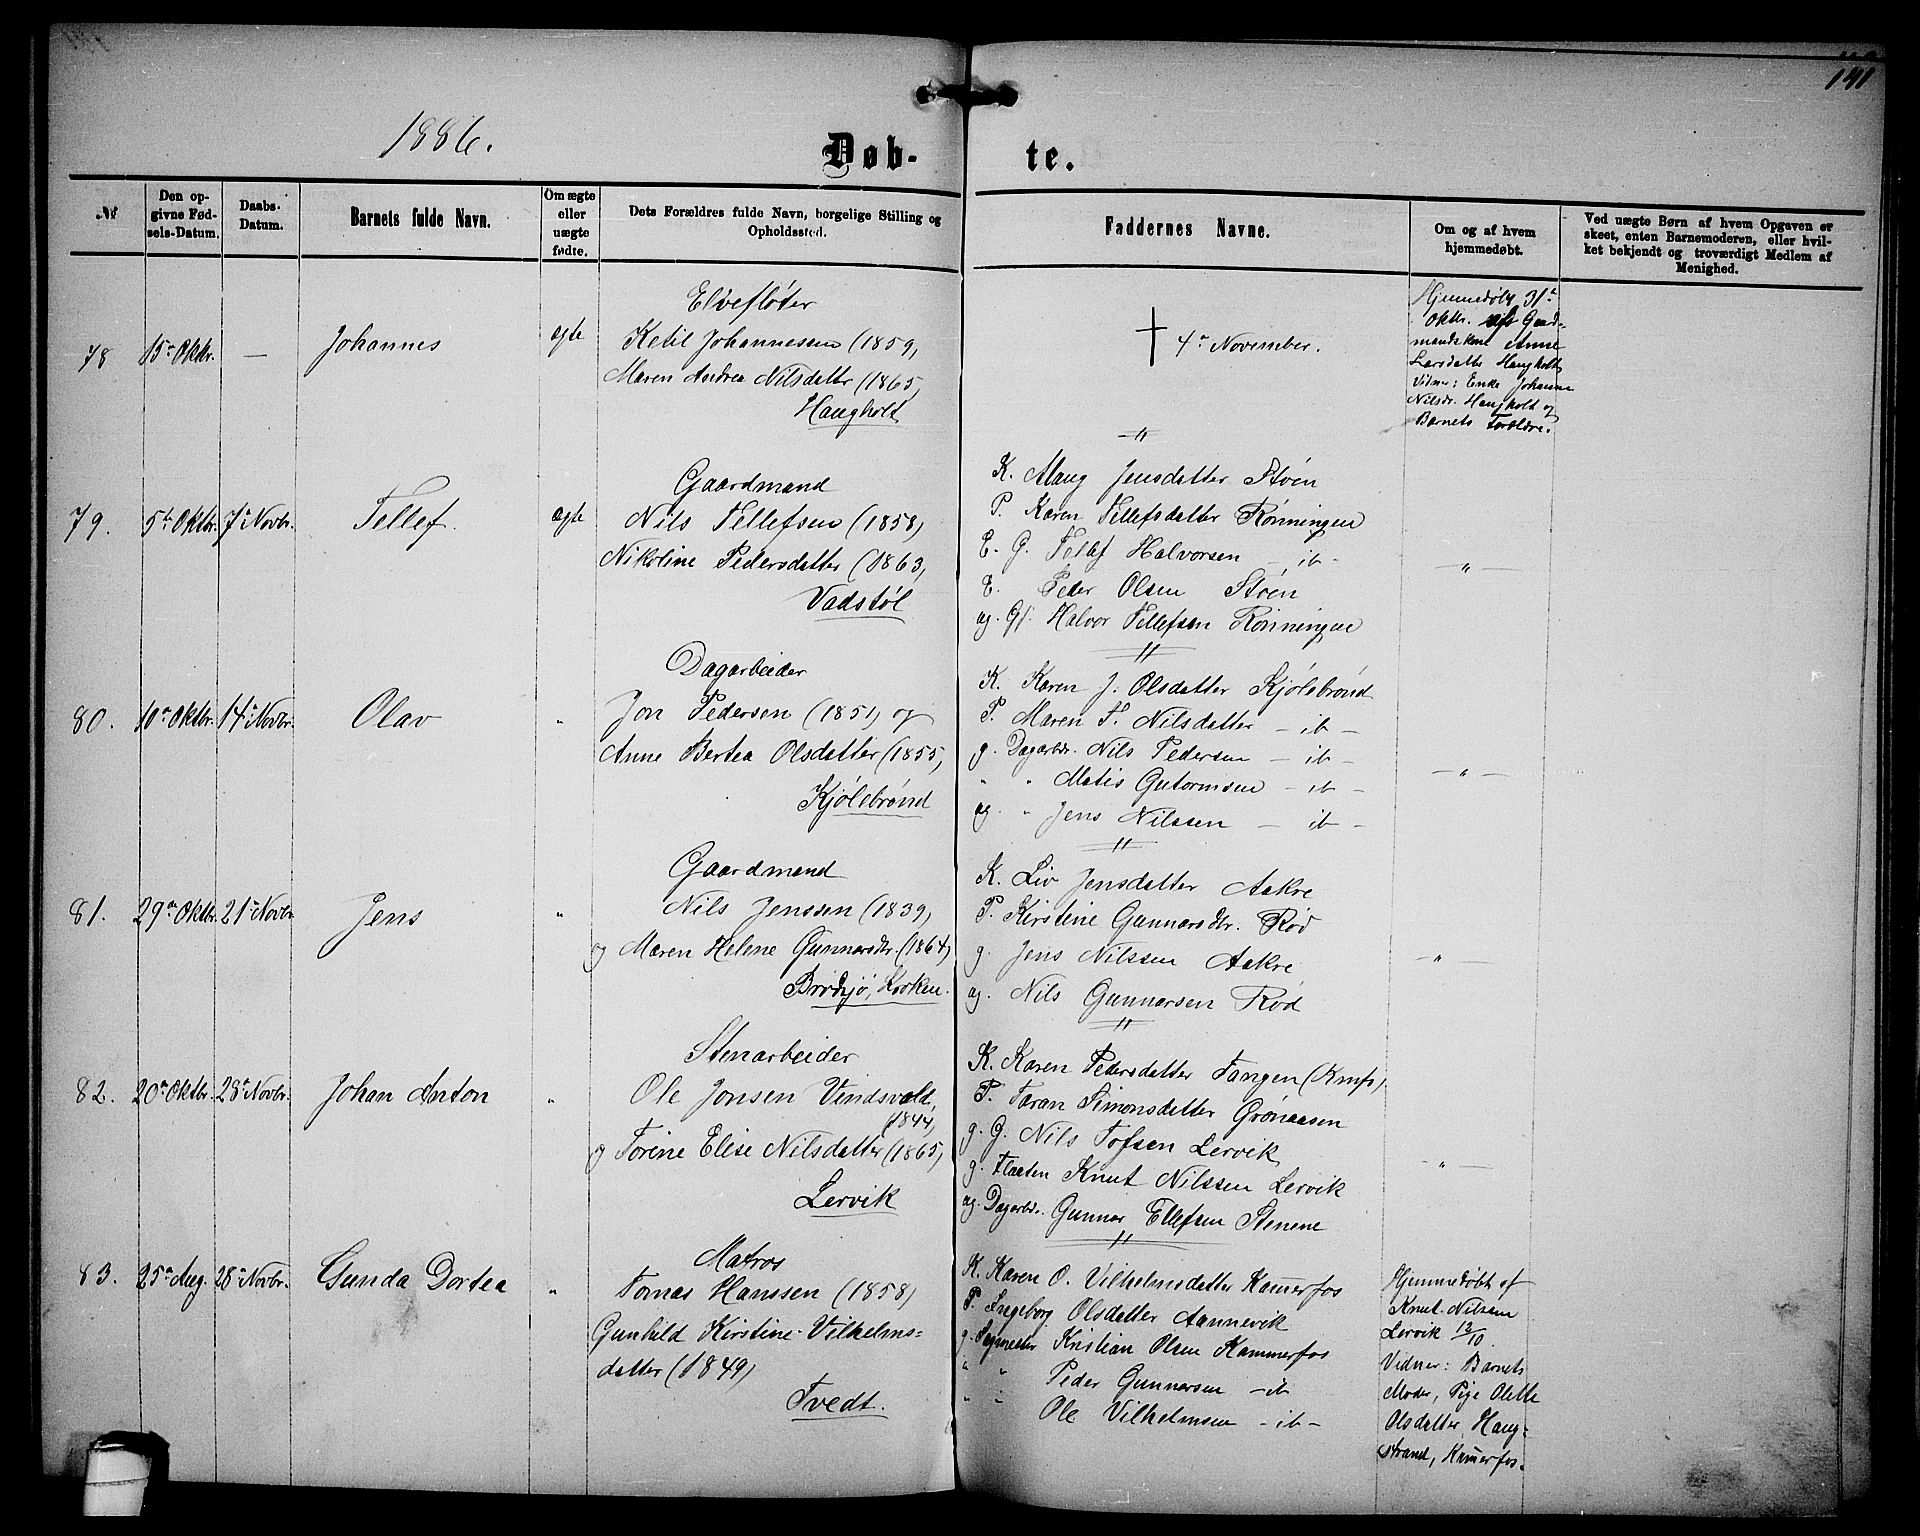 141
1886.
Døb- te.
№
Den op-
givne Fød-
sels-Datum.
Daabs-
Datum.
Barnets fulde Navn.
Om ægte
eller
uægte
fødte.
Dets Forældres fulde Navn, borgelige Stilling og
Opholdssted.
Faddernes Navne.
Om og af hvem
hjemmedøbt.
Ved uægte Børn af hvem Opgaven er
skeet, enten Barnemoderen, eller hvil-
ket bekjendt og troværdigt Medlem af
Menighed.
78 15de Oktbr. — Johannes ægte
Elvefløter
Ketil Johannessen (1859,
Maren Andrea Nilsdatter (1865,
Haugholt
† 4de November.
Hjemmedøbt 31te
Oktbr. af Gaard-
mandskone Anne
Larsdatter Haugholt
Vidner: Enke Johanne
Nilsdr. Haugholt og
Barnets Forældre.
79. 5te Oktbr. 7de Novbr. Tellef. ægte
Gaardmand
Nils Tellefsen (1858,
Nikoline Pedersdatter (1863,
Vadstøl
K. Maug Jensdatter Støen
P. Karen Tellefsdatter Rønningen
E. G. Tellef Halvorsen — ib —
E. Peder Olsen Støen
og. Gf. Halvor Tellefsen Rønningen
— " —
80. 10de Oktbr. 14de Novbr. Olav "
Dagarbeider
Jon Pedersen (1851) og
Anne Bertea Olsdatter (1855,
Kjølebrønd
K. Karen J. Olsdatter Kjølebrønd
P. Maren T. Nilsdatter — ib —
g. Dagarbdr. Nils Pedersen — ib —
" " Matis Gutormsen — ib —
og. " Jens Nilssen — ib —
— " —
81. 29de Oktbr. 21de Novbr. Jens "
Gaardmand
Nils Jenssen (1839)
og Maren Helene Gunnarsdtr. (1864)
Brødsjø, Korken.
K. Liv Jensdatter Aakre
P. Kirstine Gunnarsdtr. Rød
g. Jens Nilssen Aakre
og. Nils Gunnarsen Rød
— " —
82. 20de Oktbr. 28de Novbr. Johan Anton "
Stenarbeider
Ole Jonsen Vindsvold,
(1844,
og Torine Elise Nilsdatter (1865,
Lervik
K. Karen Pedersdatter Tangen (Kmfs)
P. Taran Simonsdatter Grønaasen
g. G. Nils Tofsen Lervik
g. Knut Nilssen Lervik
og. Dagarbdr. Gunnar Ellefsen Stenene
— " —
83. 25de Aug. 28de Novbr. Gunda Dortea "
Matros
Tomas Hanssen (1858)
Gunhild Kirstine Vilhelms-
datter (1849)
Tvedt.
K. Karen O. Vilhelmsdatter Kammerfos
P. Ingeborg Olsdatter Aannevik
g. Kristian Olsen Kammerfos
" " Peder Gunnarsen — ib
" " Ole Vilhelmsen — ib —
Hjemmedøbt af
Knut Nilssen
Lervik 13/10
Vidner: Barnets
Moder, Pige Olette
Olsdatter Haug-
strand, Kammerfos.